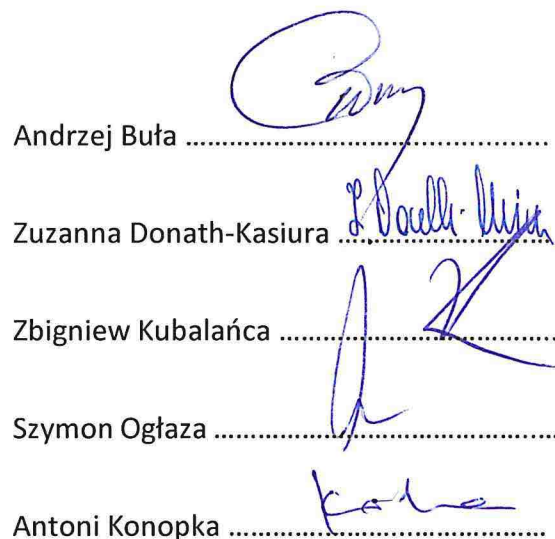 Andrzej Buła ........................................
Zuzanna Donath-Kasiura ........................
Zbigniew Kubalańca ................................
Szymon Ogłaza ........................................
Antoni Konopka .....................................